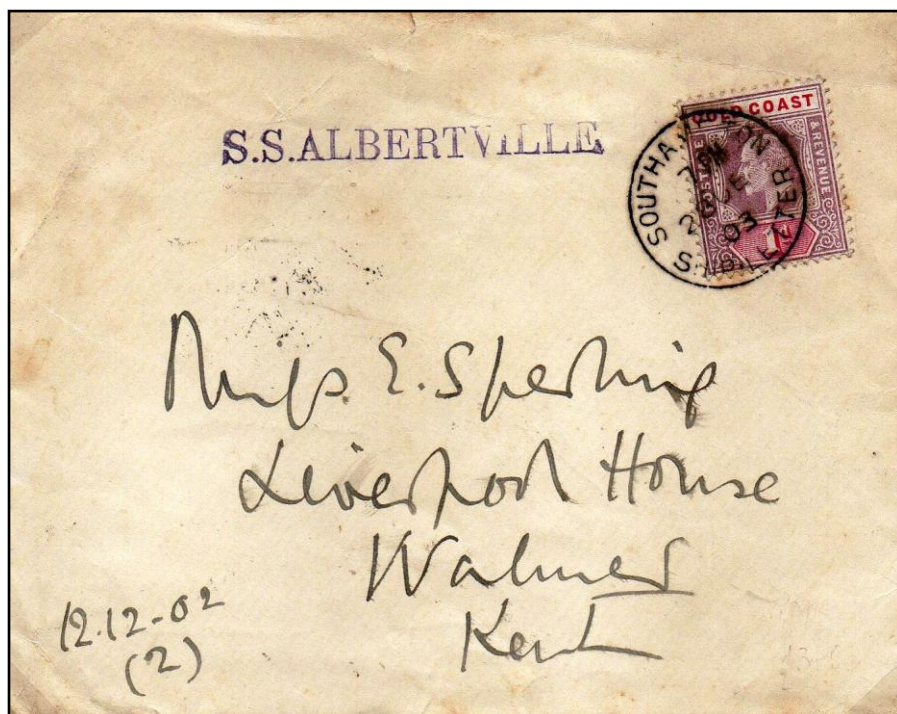 S.S.ALBERTVILLE
GOLD COAST
POSTAGE & REVENUE
SOUTHAMPTON
SHIP LETTER
03
Miss. E. Sperling
Liverpool House
Walmer
Kent
12.12-02
(2)